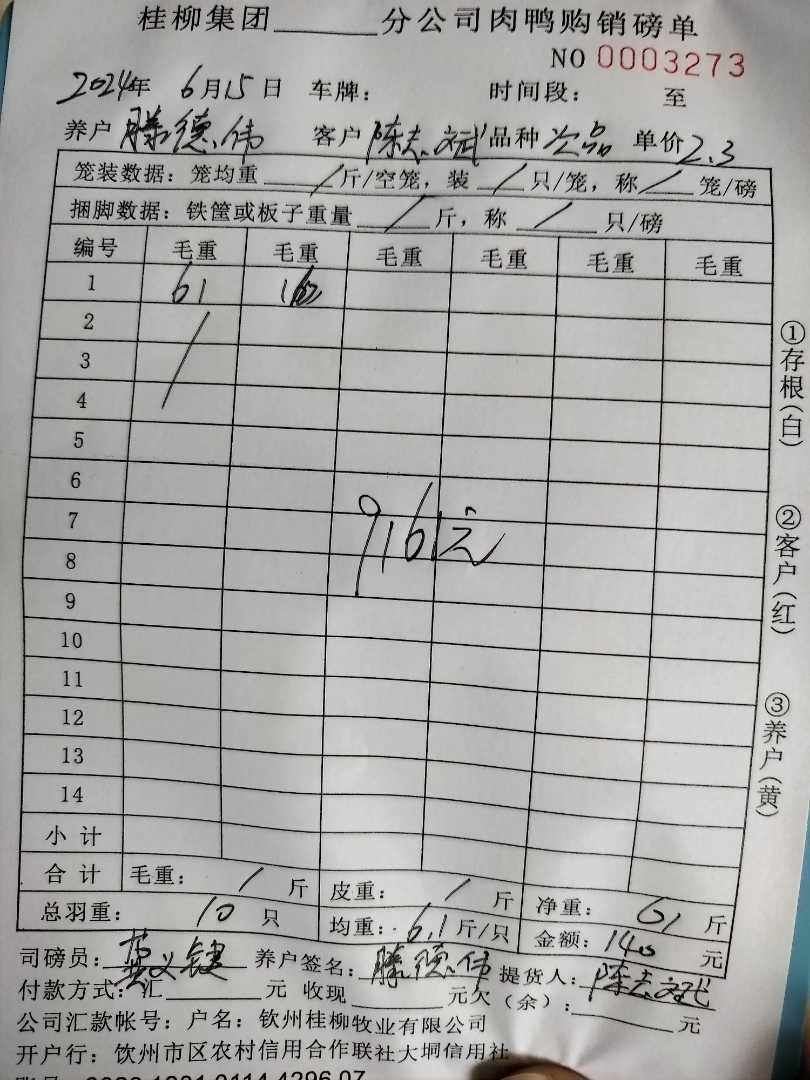 桂柳集团______分公司肉鸭购销磅单
NO 0003273
2024年 6月15日 车牌： 时间段： 至
养户 滕德伟 客户 陈志斌 品种 次品 单价 2.3
笼装数据：笼均重 / 斤/空笼，装 / 只/笼，称 / 笼/磅
捆脚数据：铁筐或板子重量 / 斤，称 / 只/磅
编号 毛重 毛重 毛重 毛重 毛重 毛重
1 61
2
3
4
5
6
7
8
9
10
11
12
13
14
9161元
小计
合计 毛重： / 斤 皮重： / 斤 净重： 61 斤
总羽重： 10 只 均重： 6.1 斤/只 金额： 140 元
司磅员： 义键 养户签名： 滕德伟 提货人： 陈志斌
付款方式：汇______元 收现______元欠（余）：______元
公司汇款帐号：户名：钦州桂柳牧业有限公司
开户行：钦州市区农村信用合作联社大垌信用社
①存根（白）
②客户（红）
③养户（黄）